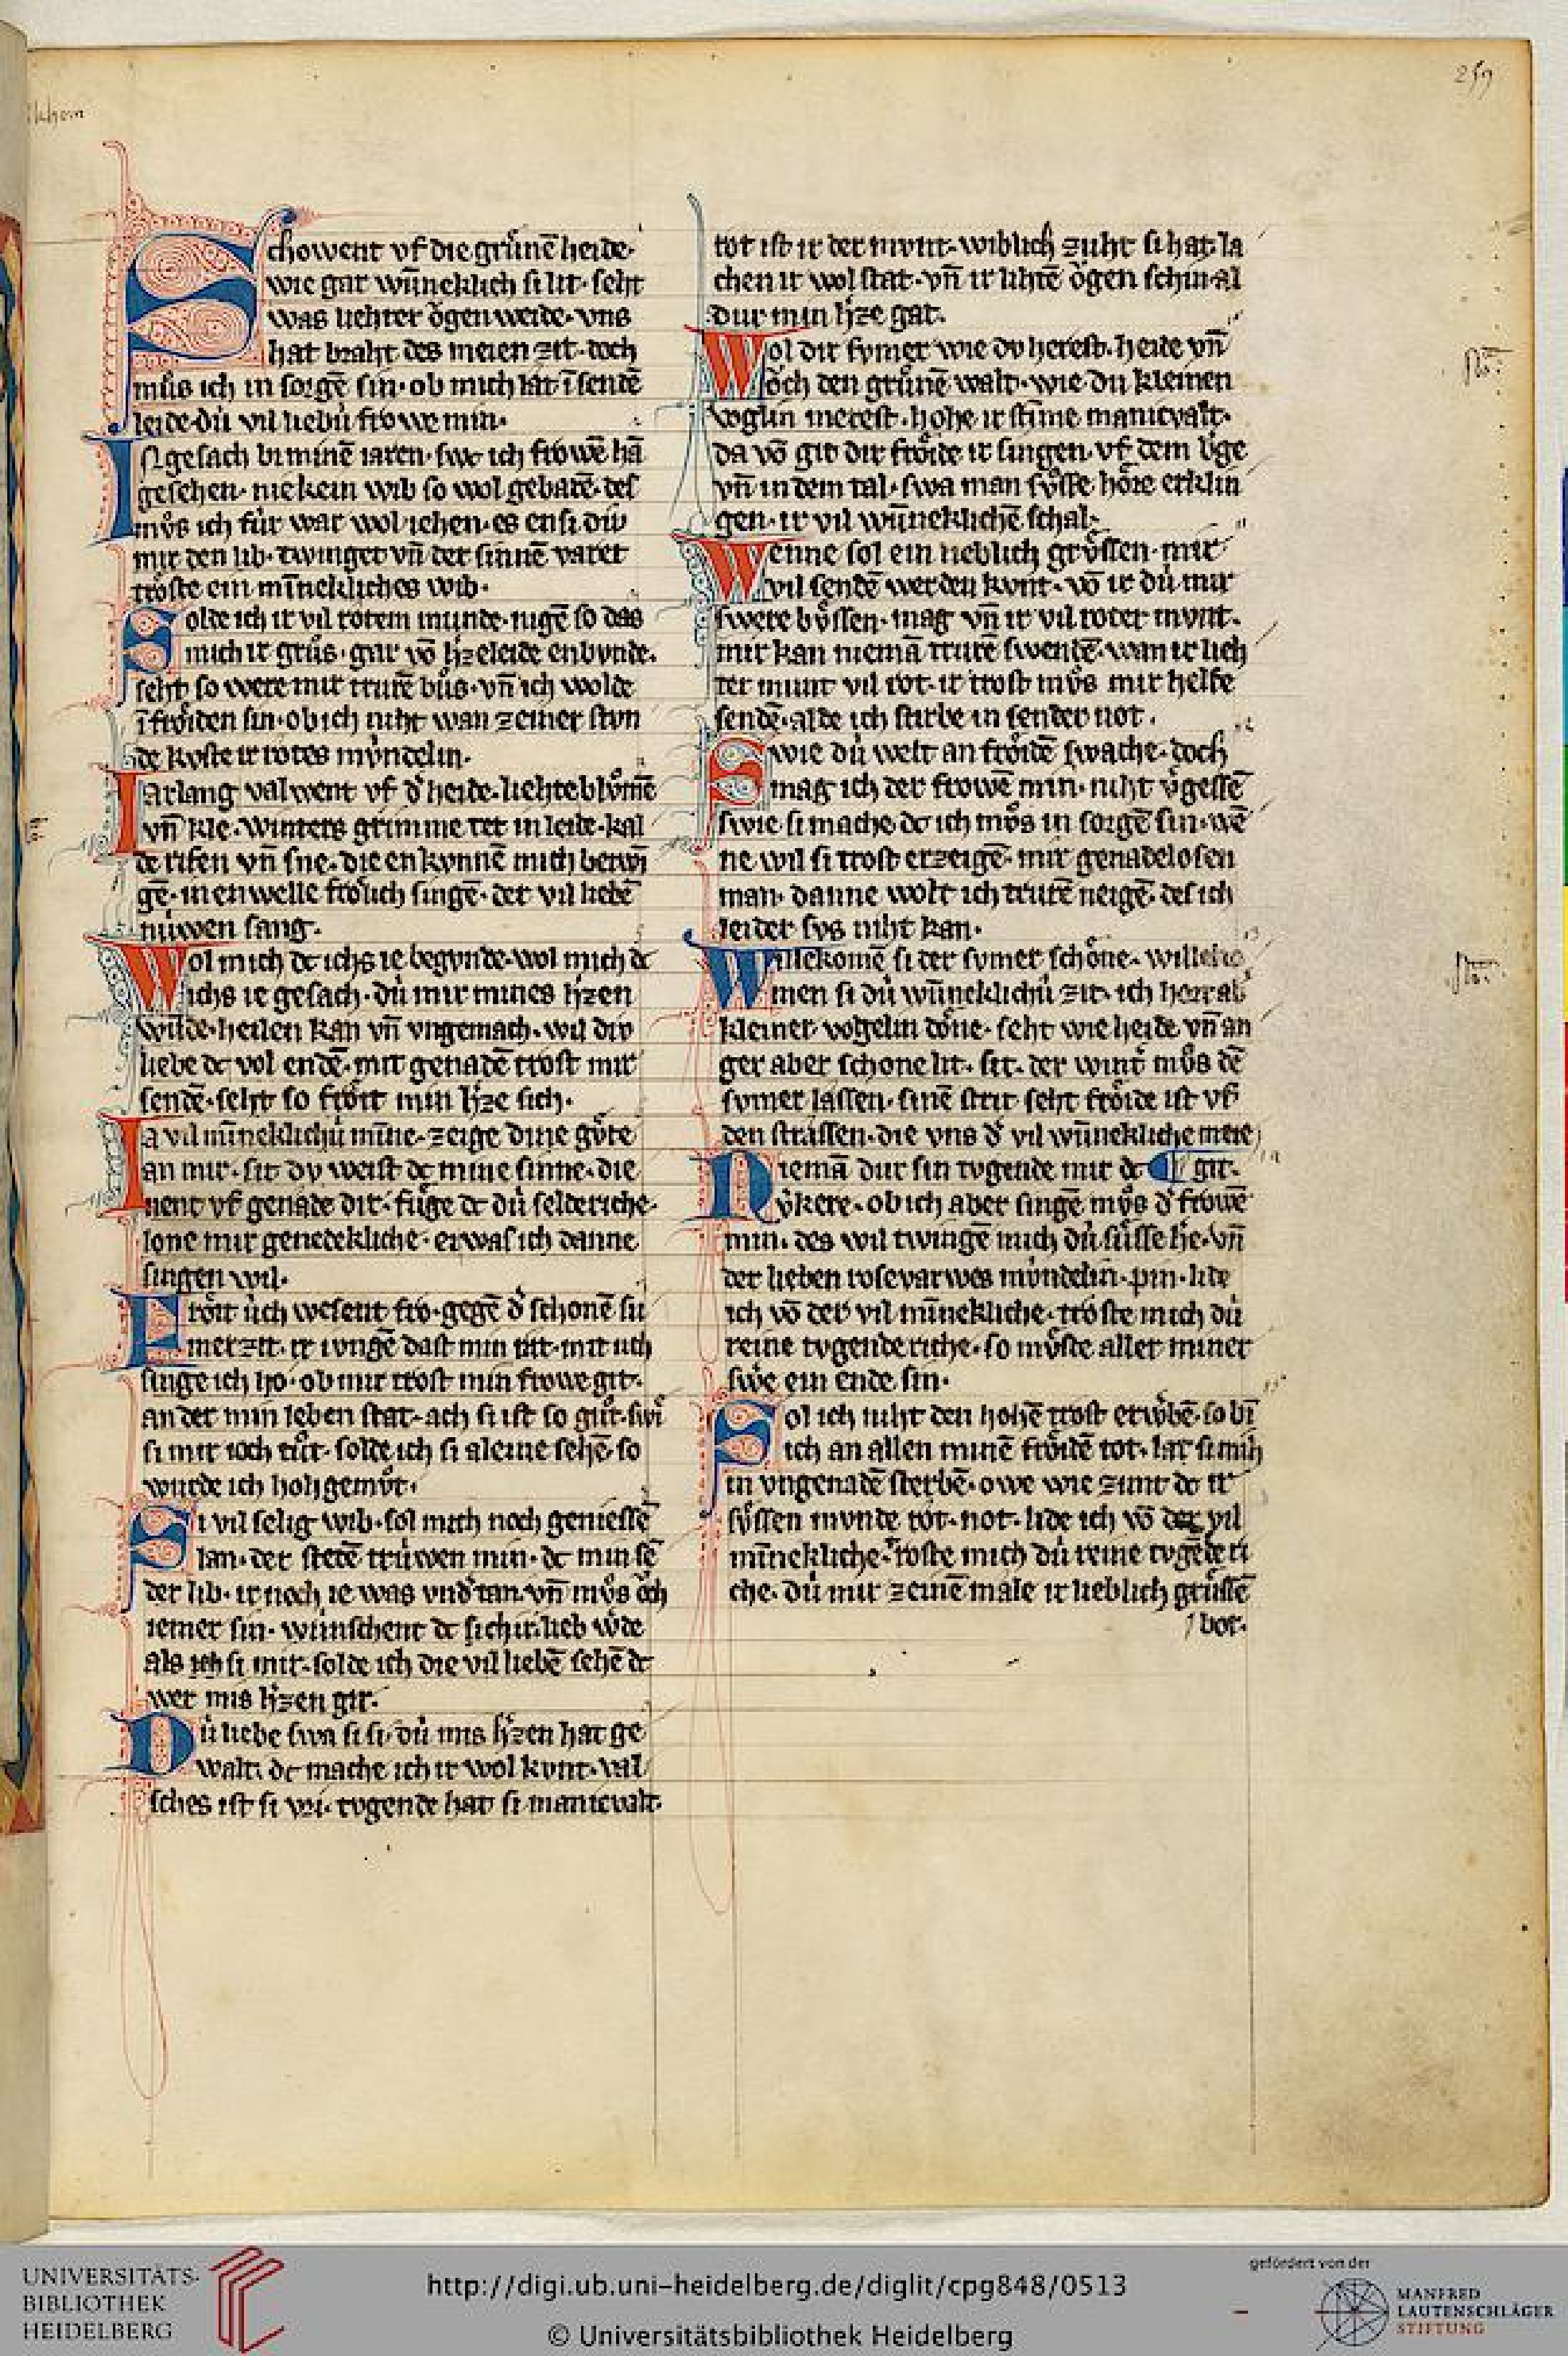 259
Schowent vf die grůnē heide·
wie gar wūneklich si lit· seht
was liehter ỏgen weide· vns
hat braht des meien zit· doch
můs ich in sorgē sin· ob mich lat ī sendē
leide· dú vil liebú frowe min·
I gesach bi minē iaren· swc ich frowē hā
gesehen· nie kein wib so wol gebarē· des
mv̊s ich fúr war wol iehen· es ensi div
mir den lib· twinget vn̄ der sinnē varet
trỏste ein mīnekliches wib·
Solde ich ir vil rotem munde· nigē so das
mich ir grůs· gar vō h'zeleide enbvnde·
seht so were mir trurē bůs· vn̄ ich wolde
ī frỏiden sin· ob ich niht wan zeiner stvn
de kvste ir rotes mv́ndelin·
Iarlang valwent vf d' heide· liehte blůmē
vn̄ kle· winters grimme tet in leide· kal
de rifen vn̄ sne· die enkvnnē mich betwī
gē· in enwelle frỏlich singē· der vil liebē
núwen sang·
Wol mich dc ichs ie begvnde· wol mich dc
ichs ie gesach· dú mir mines h'zen
wunde· heilen kan vn̄ vngemach· wil div
liebe dc vol endē· mit genadē trost mir
sendē· seht so frỏit min h'ze sich·
Ia vil mīneklichú mīne· zeige dine gv̊te
an mir· sit dv weist dc mine sinne· die
nent vf genade dir· fůge dc dú selderiche·
lone mir genedekliche· er was ich danne
singen wil·
Frỏit úch wesent fro· gegē d' schonē su
merzit· ir ivngē dast min rat· mit úch
singe ich ho· ob mir trost min frowe git·
an der min leben stat· ach si ist so gůt· swī
si mir ioch tůt· solde ich si aleine sehē· so
wurde ich hohgemv̊t·
Si vil selig wib· sol mich noch geniessē
lan· der stetē trúwen min· dc min sē
der lib· ir noch ie was vnd'tan· vn̄ mv̊s ỏch
iemer sin· wúnschent dc si ch ir· lieb w'de
als ich si mir· solde ich die vil liebē sehē dc
wer mis h'zen gir·
Dú liebe swa si si· dú mis h'zen hat ge
walt· dc mache ich ir wol kvnt· val
sches ist si vri· tvgende hat si manicvalt·
rot ist ir der mvnt· wiblich zuht si hat· la
chen ir wol stat· vn̄ ir lihtē ỏgen schin· al
dur min h'ze gat·
Wol dir svmer wie dv herest· heide vn̄
ỏch den grůnē walt· wie du kleinen
voglin merest· hohe ir stīme manicvalt·
da vō git dir frỏide ir singen· vf dem b'ge
vn̄ in dem tal· swa man sv̊sse hỏre erklin
gen· ir vil wūneklichē schal·
Wenne sol ein lieblich grv̊ssen· mir
vil sendē werden kvnt· vō ir dú mir
swere bv̊ssen· mag vn̄ ir vil roter mvnt·
mir kan niemā trurē swendē· wan ir lieh
ter munt vil rot· ir trost mv̊s mir helfe
sendē· alde ich stirbe in sender not·
Swie dú welt an frỏidē swache· doch
mag ich der frowē min· niht v'gessē
swie si mache dc ich mv̊s in sorgē sin· wē
ne wil si trost erzeigē· mir genadelosen
man· danne wolt ich trurē neigē· des ich
leider svs niht kan·
Willekomē si der svmer schỏne· willeko
men si dú wūneklichú zit· ich hỏrt ab'
kleiner vogelin dỏne· seht wie heide vn̄ an
ger aber schone lit· sit· der wint' mv̊s dē
svmer lassen· sinē strit· seht frỏide ist vf
den strassen· die vns d' vil wūnekliche meie
Niemā dur sin tvgende mir dc ¶ git·
v'kere· ob ich aber singē mv̊s d' frowē
min· des wil twingē mich dú sůsse h'e· vn̄
der lieben rosevarwes mv́ndelin· pin· lide
ich vō der vil mīnekliche· trỏste mich dú
reine tvgenderiche· so mv̊ste aller miner
sw'e ein ende sin·
Sol ich niht den hohē trost erw'bē· so bī
ich an allen minē frỏidē tot· lat si mih
in vngenadē sterbē· owe wie zimt dc ir
sv̊ssen mvnde rot· not· lide ich vō der vil
mīnekliche· trỏste mich dú reine tvgēde ri
che· dú mir zeinē male ir lieblich grůssē
bot·
UNIVERSITÄTS-
BIBLIOTHEK
HEIDELBERG
http://digi.ub.uni-heidelberg.de/diglit/cpg848/0513
© Universitätsbibliothek Heidelberg
gefördert von der
MANFRED
LAUTENSCHLÄGER
STIFTUNG